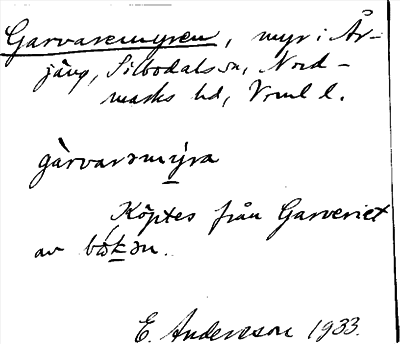 Garvaremyren, myr i År-
jäng, Silbodals sn, Nord-
marks hd, Vrml l.
gàrvarəmýra
Köptes från Garveriet
av bókən.
E. Andersson 1933.